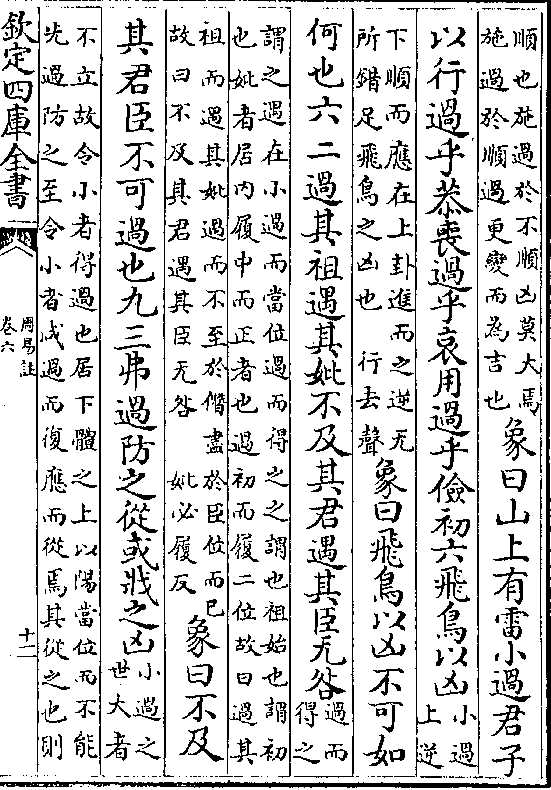 順也施過於不順凶莫大焉
施過於順過更變而為吉也
象曰山上有雷小過君子
以行過乎恭喪過乎哀用過乎儉初六飛鳥以凶
小過
上逆
下順而應在上卦進而之逆无
所錯足飛鳥之凶也 行去聲
象曰飛鳥以凶不可如
何也六二過其祖遇其妣不及其君遇其臣无咎
過而
得之
謂之遇在小過而當位過而得之之謂也祖始也謂初
也妣者居内履中而正者也過初而履二位故曰過其
祖而遇其妣過而不至於僭盡於臣位而已
故曰不及其君遇其臣无咎 妣必履反
象曰不及
其君臣不可過也九三弗過防之從或戕之凶
小過之
世大者
不立故令小者得過也居下體之上以陽當位而不能
先過防之至令小者咸過而復應而從焉其從之也則
欽定四庫全書
周易註
卷六
十二